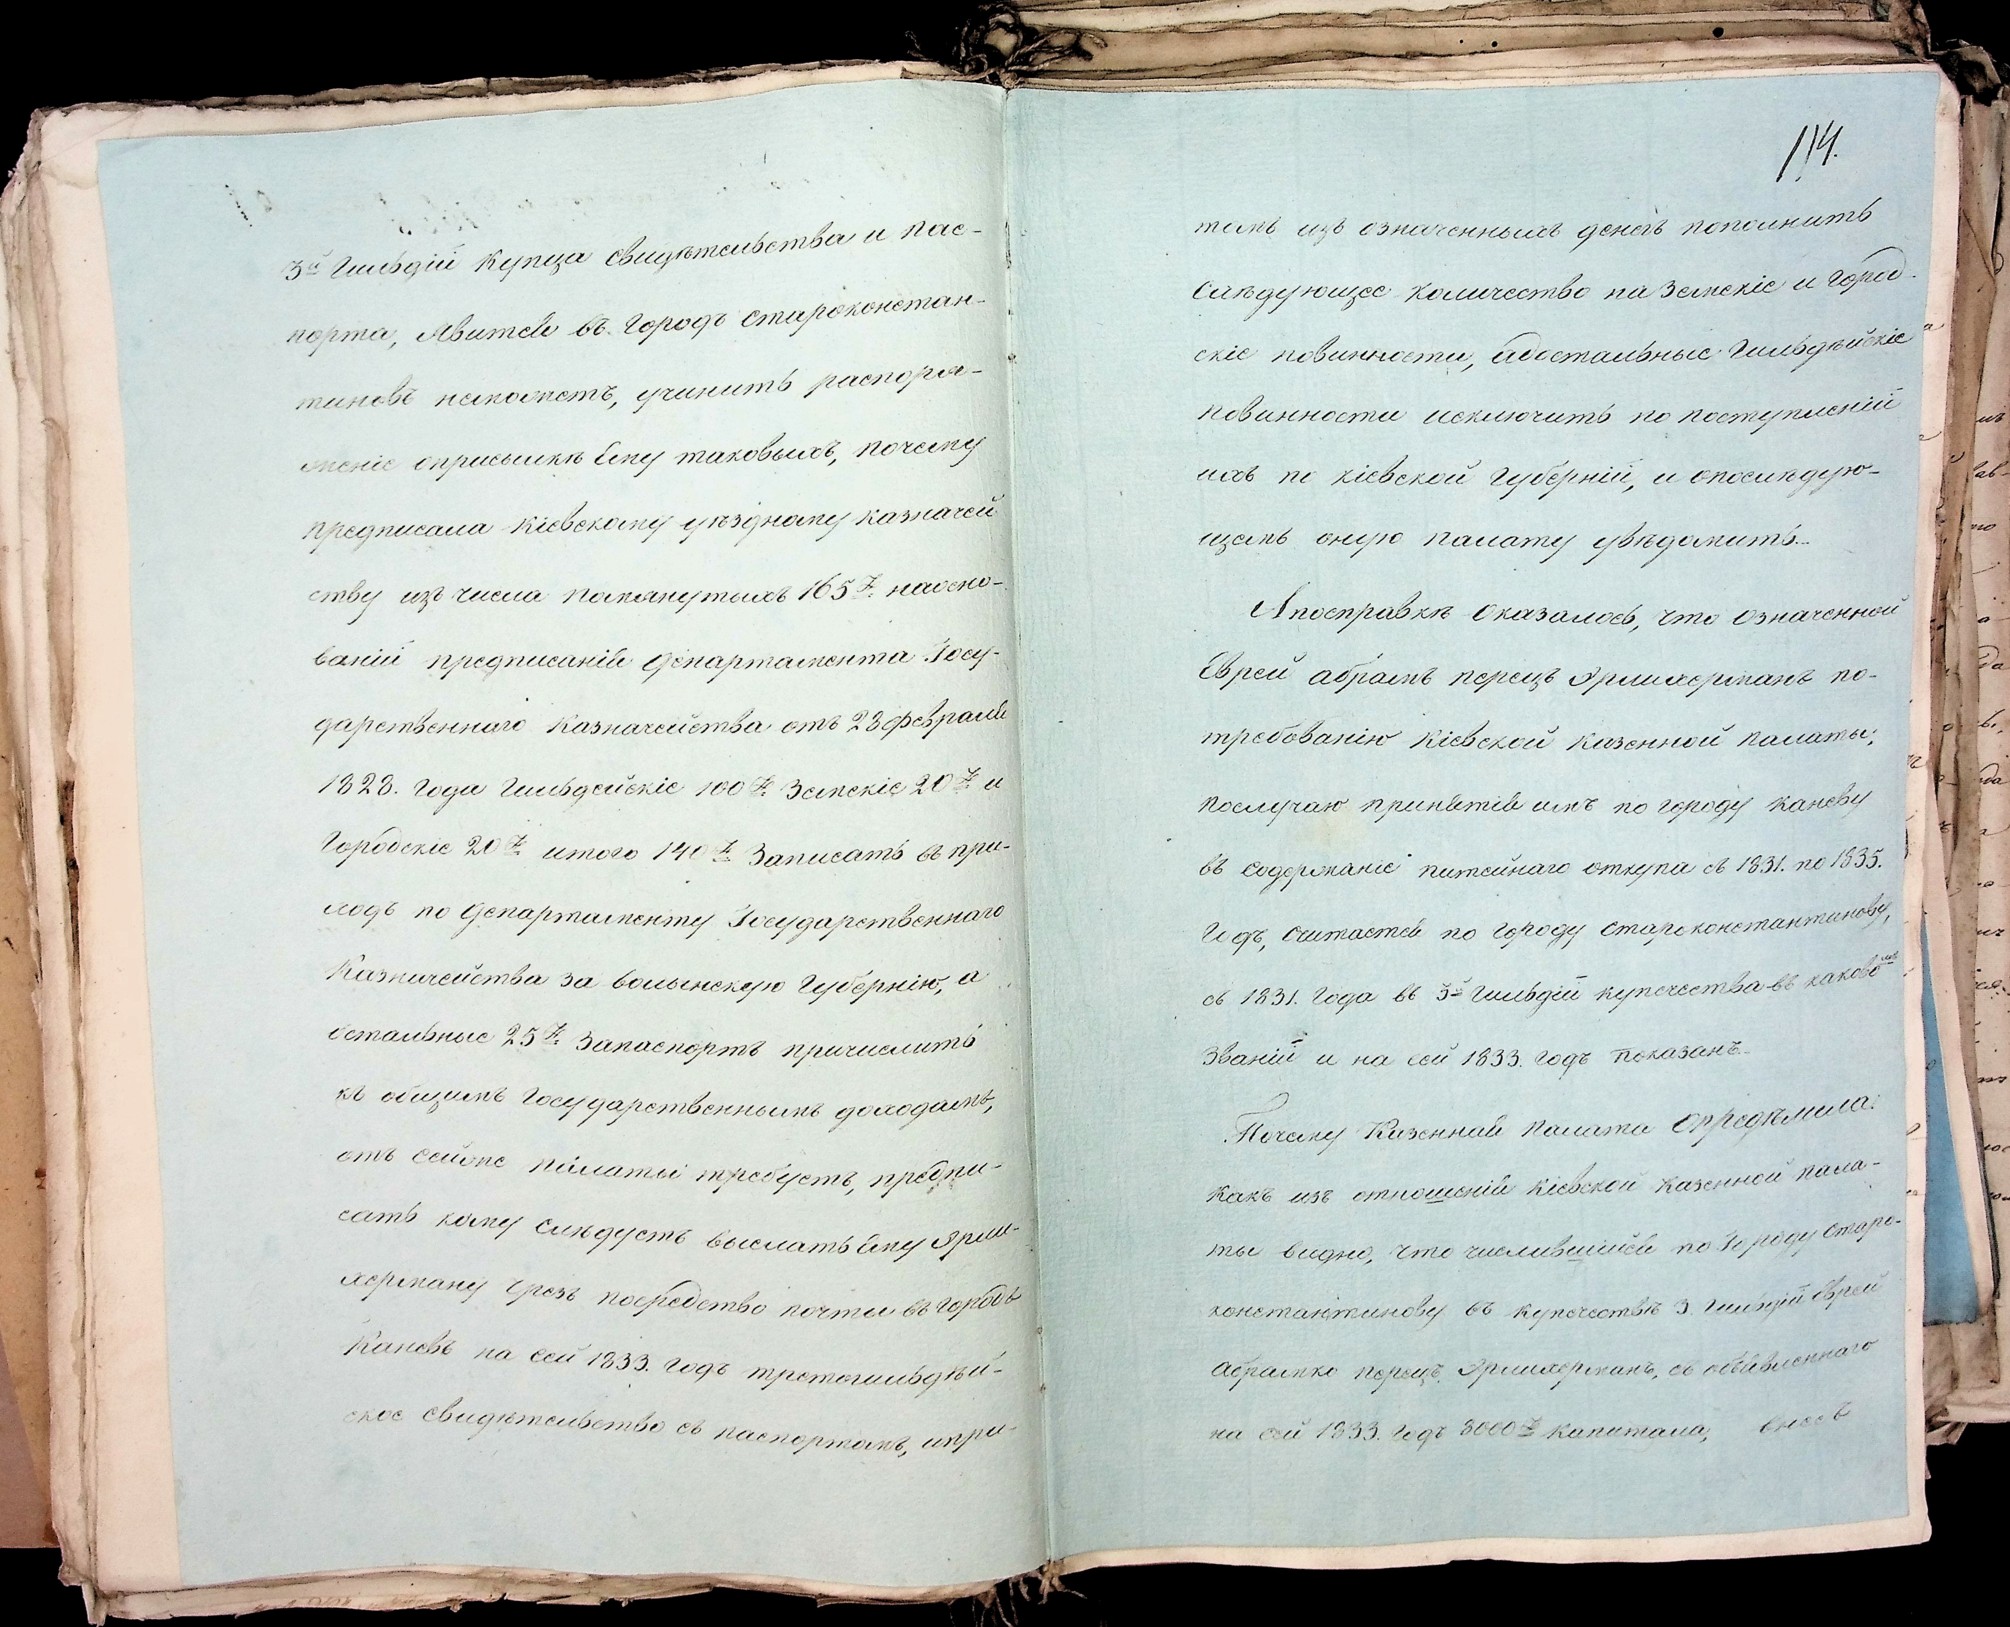 3й Гильдій Купца свидѣтельства и пас-
порта, явится въ городъ староконстан-
тиновъ неможетъ, учинить распоря-
женіе оприсылкѣ Ему таковыхъ, почему
предписала кіевскому уѣздному казначей
ству изъ числа помянутыхъ 165 р. наосно-
ваній предписанія департамента Госу-
дарственнаго Казначейства отъ 23 февраля
1828. года гильдейскіе 100 р. Земскіе 20 р. и
Городскіе 20 р. итого 140 р. Записать въ при-
ходъ по департаменту Государственнаго
Казначейства за волынскую губернію, а
остальные 25 р. Запаспортъ причислить
къ общимъ государственнымъ доходамъ,
отъ сейже палаты требуетъ, предпи-
сать кому слѣдуетъ выслать Ему Ярмо-
херману чрезъ посредство почты въ городъ
Каневъ на сей 1833. годъ третогильдѣй-
ское свидѣтельство съ паспортомъ, ипри-
114.
томъ изъ означенныхъ денегъ пополнить
слѣдующее количество на Земскіе и город-
скіе повинности, адостальные гильдѣйскіе
повинности исключить по поступленій
ихъ по кіевской губерній, и опослѣдую-
щемъ оную палату увѣдомить.
Апосправкѣ Оказалось, что Означенной
Еврей абрамъ перецъ Ярмохерманъ по-
требованію Кіевской казенной палаты,
послучаю принятія имъ по городу каневу
въ содержаніе питейнаго откупа съ 1831. по 1835.
годъ, считается по городу староконстантинову,
съ 1831. года въ 3й гильдій купечества въ каковомъ
званій и на сей 1833. годъ показанъ.
Почему Казенная палата Опредѣлила:
Какъ изъ отношенія кіевской казенной пала-
ты видно, что числившійся по городу Старо-
константинову въ купечествѣ 3. гильдій Еврей
абрамко перецъ Ярмохерманъ, съ объявленнаго
на сей 1833. годъ 8000 р. капитала, внесъ